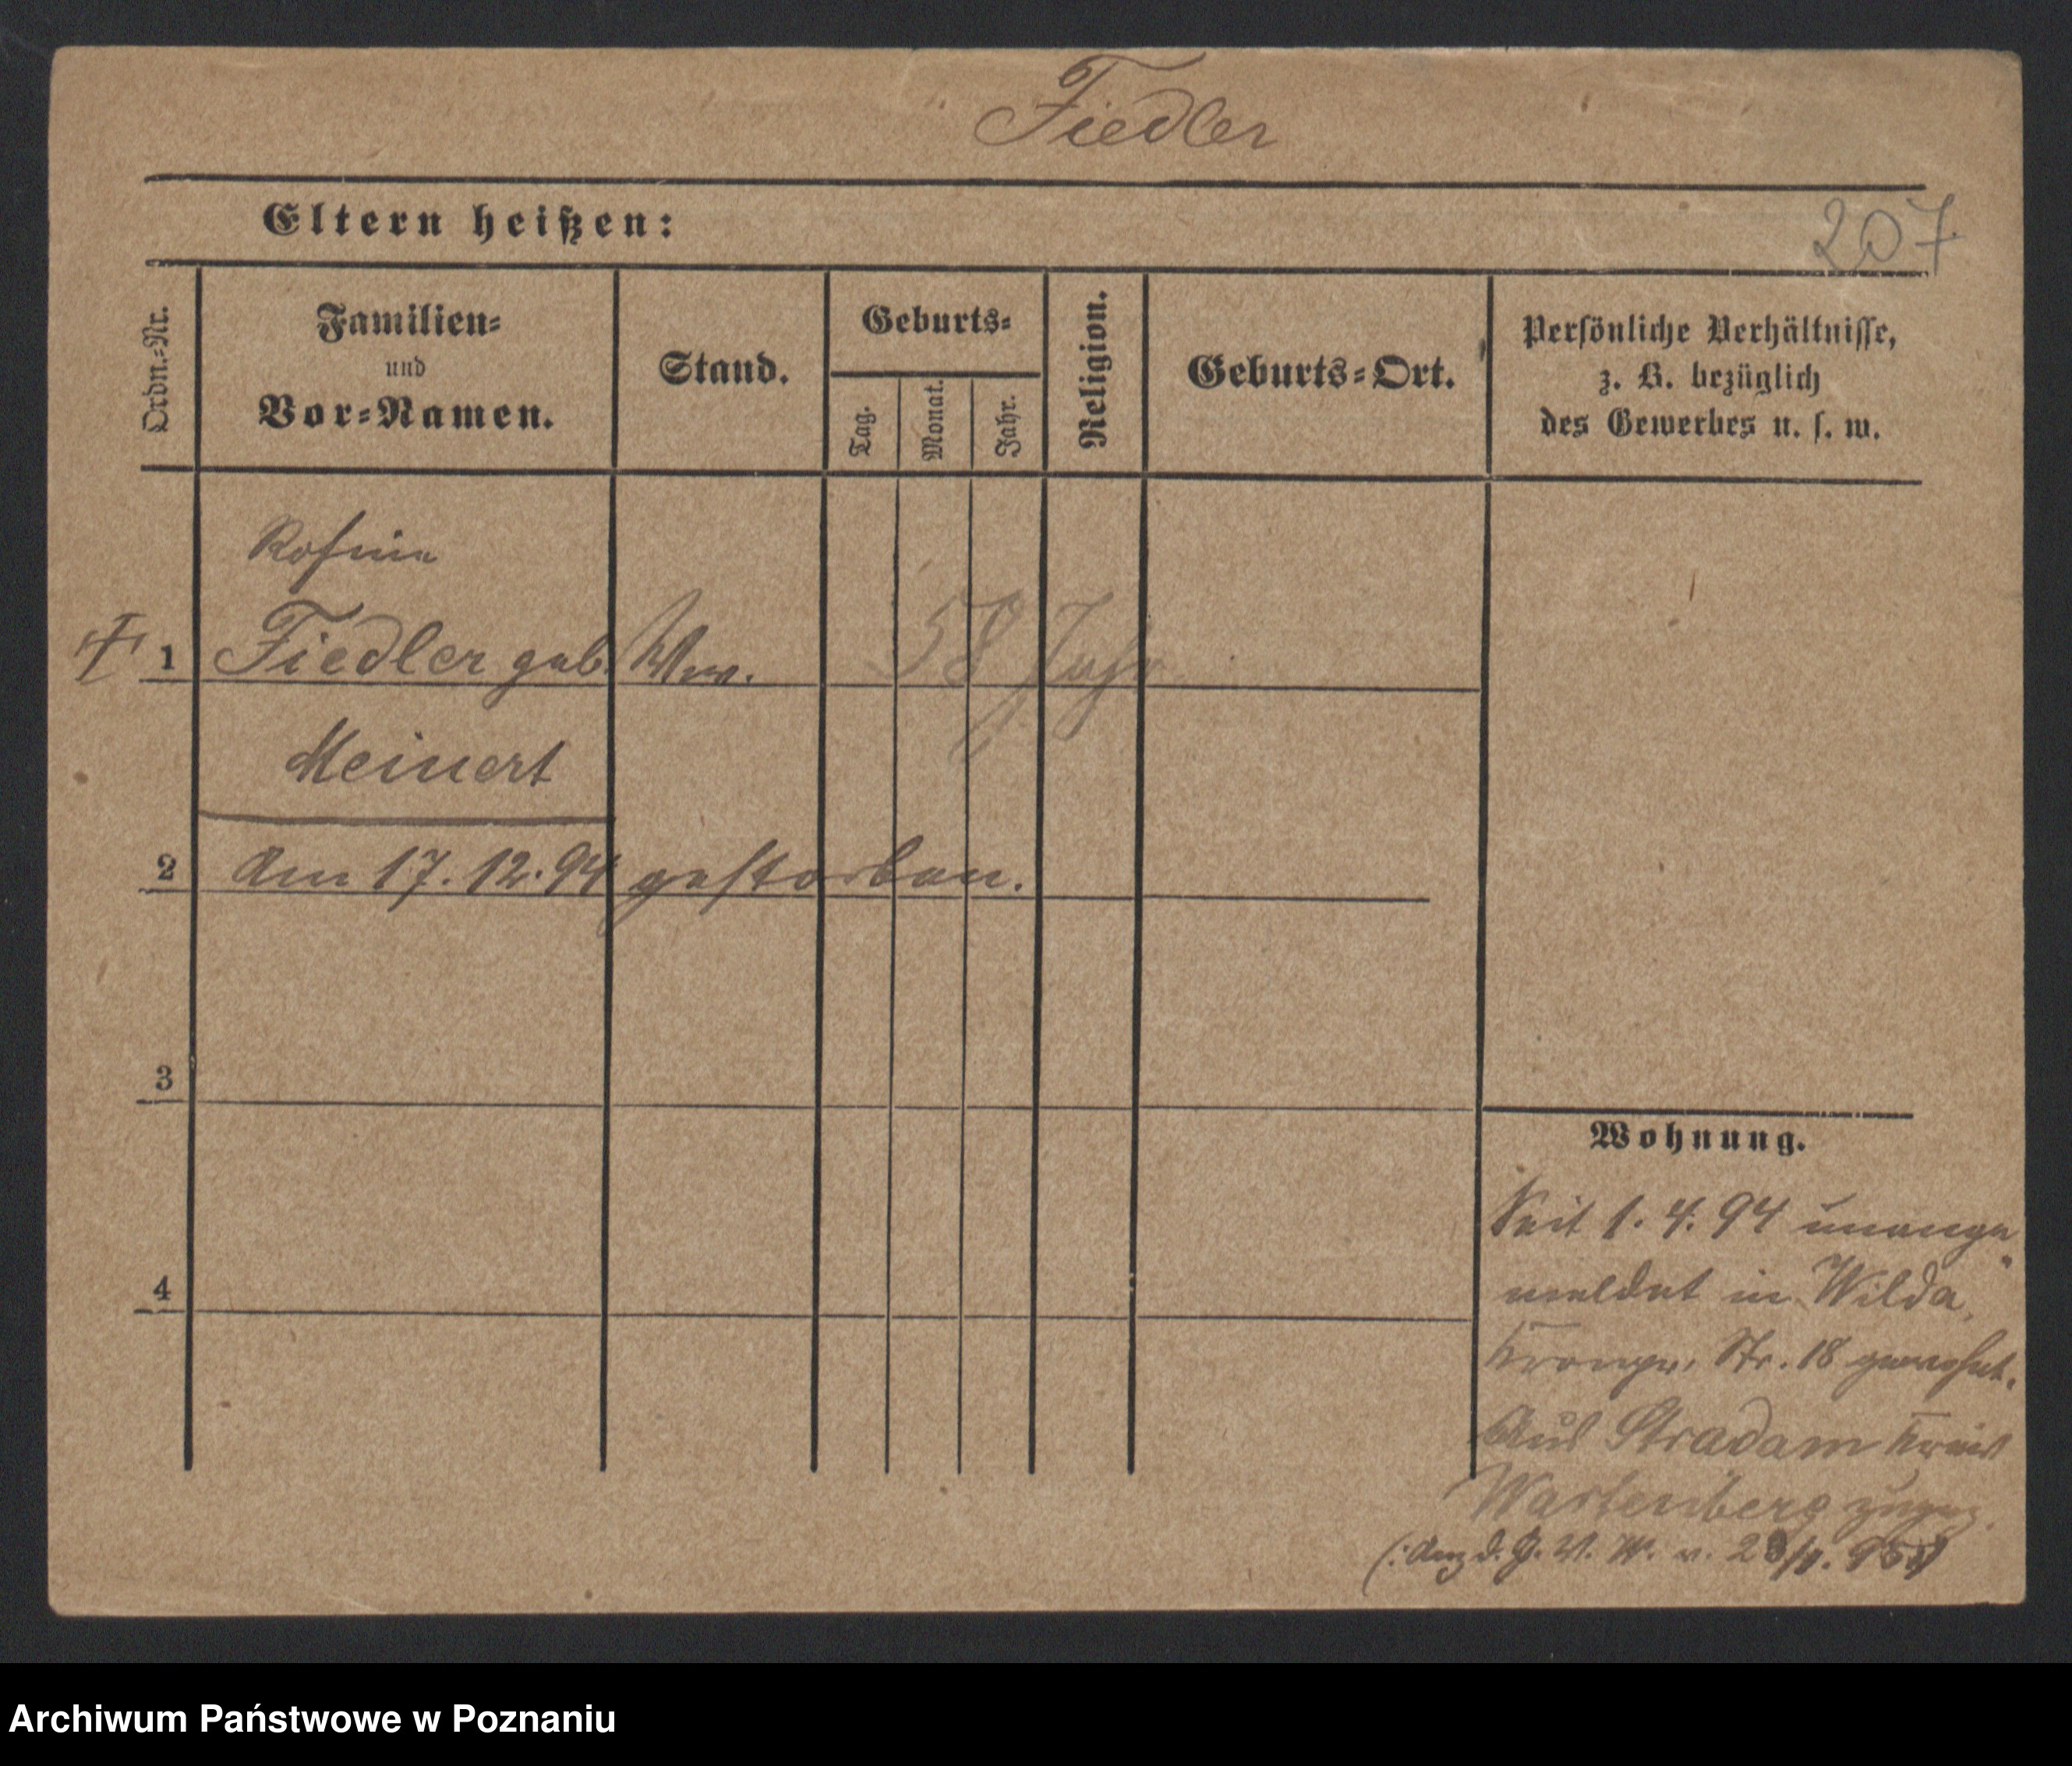 Fiedler
Eltern heißen:
207
Ordn.-Nr.
Familien-
und
Vor-Namen.
Stand.
Geburts-
Tag.
Monat.
Jahr.
Religion.
Geburts-Ort.
Persönliche Verhältnisse,
z. B. bezüglich
des Gewerbes u. s. w.
Rosina
1 Fiedler geb. Ww. 58 Jahr
Meinert
2 Am 17.12.94 gestorben.
3
Wohnung.
Seit 1.4.94 unange
4
meldet in Wilda,
Kronpr. Str. 18 gewohnt.
Aus Stradam Kreis
Wartenberg zugez.
d. v.
Archiwum Państwowe w Poznaniu